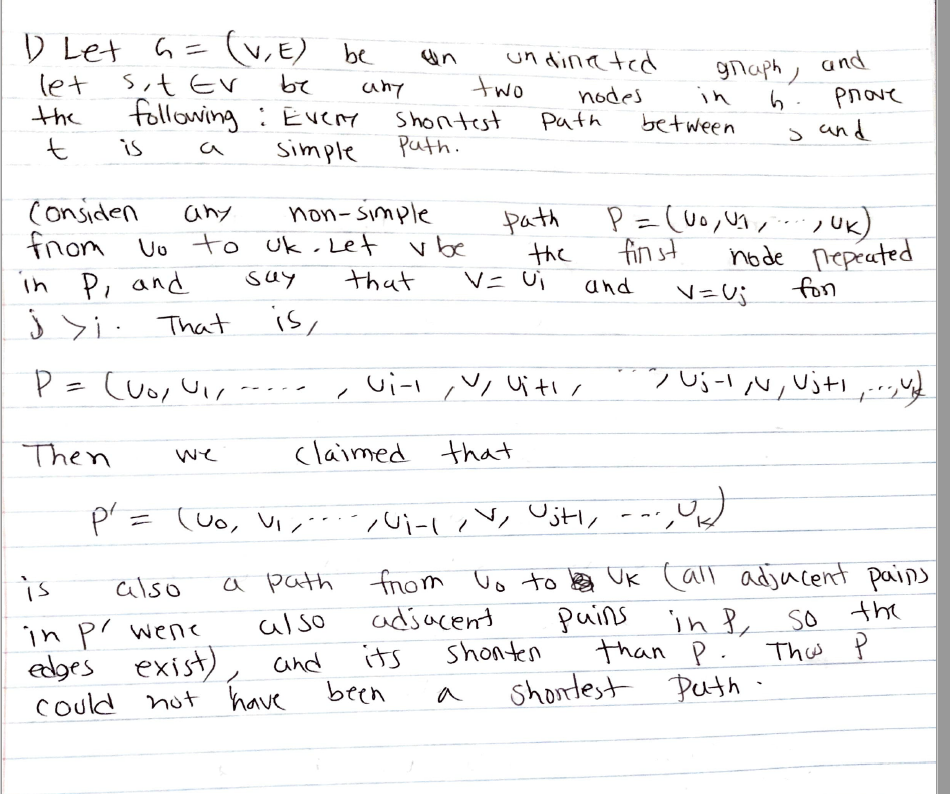 1) Let G = (V,E) be an undirected graph, and
let s,t ∈ V be any two nodes in G. prove
the following : Every shortest path between s and
t is a simple path.
Consider any non-simple path P = (u0, u1, ...., uk)
from u0 to uk. Let v be the first node repeated
in P, and say that v = ui and v = uj for
j > i. That is,
P = (u0, u1, ......, ui-1, v, ui+1, ..., uj-1, v, uj+1, ..., uk)
Then we claimed that
P' = (u0, u1, ....., ui-1, v, uj+1, ...., uk)
is also a path from u0 to uk (all adjacent pairs
in P' were also adjacent pairs in P, so the
edges exist), and its shorter than P. Thus P
could not have been a shortest path.